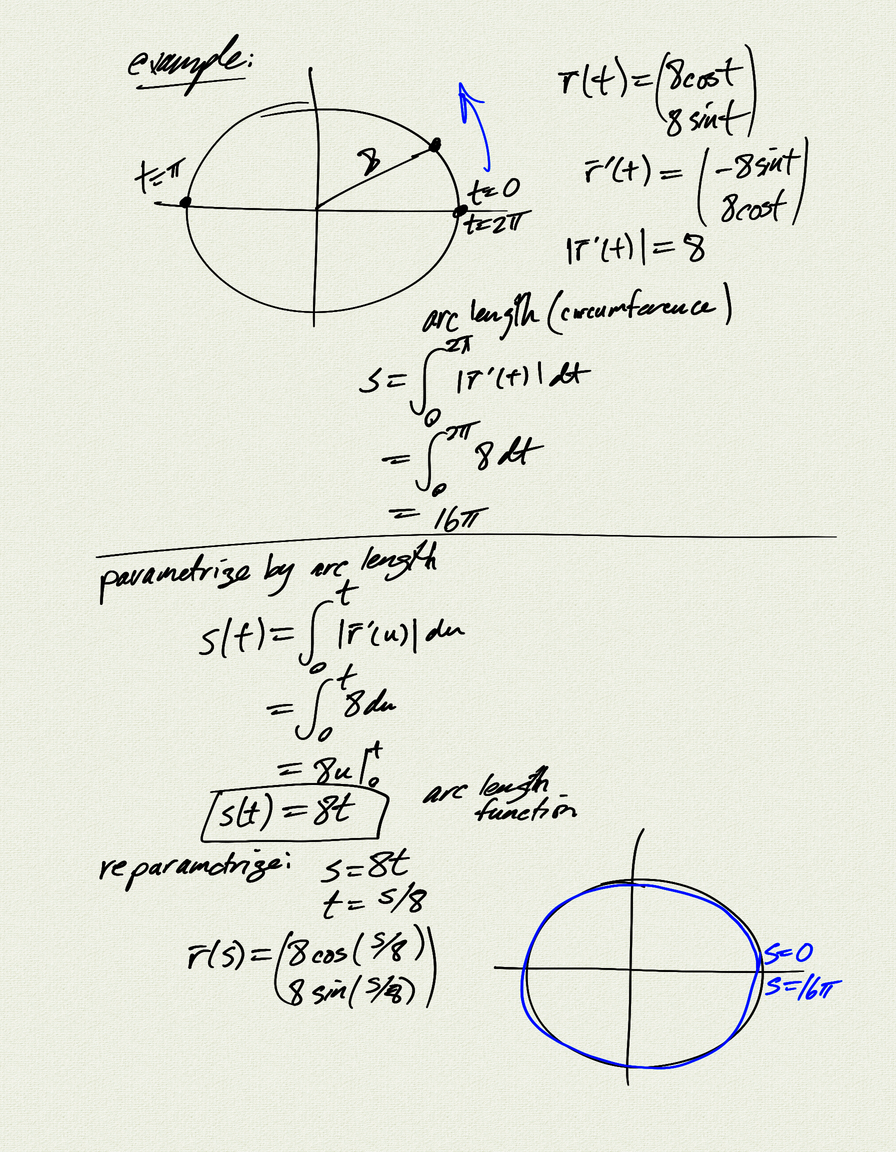 example:
r̄(t) = (8cost
8sint)
t=π
8
t=0
t=2π
r̄'(t) = (-8sint
8cost)
|r̄'(t)| = 8
arc length (circumference)
s = ∫₀^2π |r̄'(t)| dt
= ∫₀^2π 8 dt
= 16π
parametrize by arc length
s(t) = ∫₀^t |r̄'(u)| du
= ∫₀^t 8 du
= 8u|₀^t
s(t) = 8t
arc length
function
reparametrize: s = 8t
t = s/8
r̄(s) = (8 cos(s/8)
8 sin(s/8))
s=0
s=16π